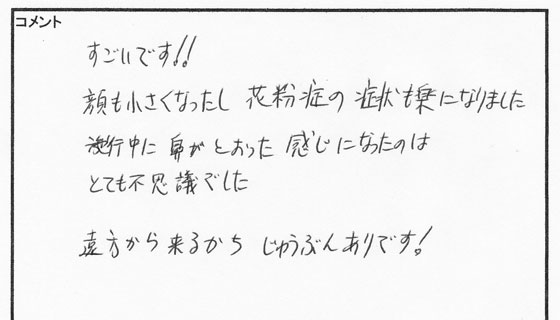 コメント
すごいです!!
顔も小さくなったし 花粉症の 症状も楽になりました
施行中に 鼻が とおった 感じになったのは
とても不思議でした
遠方から 来るかち じゅうぶんありです!